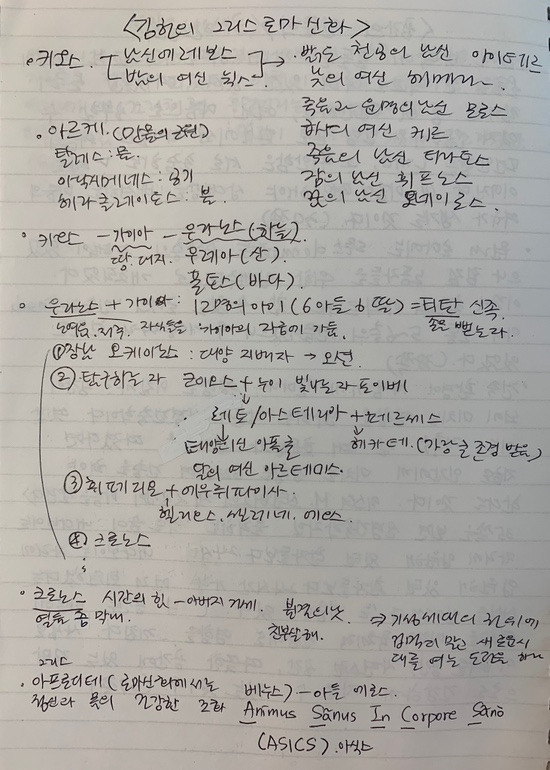 <김헌의 그리스 로마 신화>
· 카오스. - 남신에레보스 → 밝은 천공의 남신 아이테르
밤의 여신 닉스 낮의 여신 헤메라
죽음과 운명의 남신 모로스
· 아르케. (만물의 근원) 하나의 여신 케르
탈레스 : 물 죽음의 남신 타나토스
아낙시메네스 : 공기 잠의 남신 휘프노스
헤라클레이토스 : 불 꿈의 남신 오네이로스.
· 카오스 - 가이아 - 우라노스 (하늘)
땅. 대지. 우레아 (산)
폰토스 (바다).
· 우라노스 + 가이아 : 12명의 아이 (6아들 6딸) = 티탄 신족.
자식들을 가이아의 자궁에 가둠. 뻗는 자.
① 장남 오케아노스 : 대양 지배자 → 오션
② 탐구하는 자 코이오스 + 누이 빛나는자 포이베
↓
레토/아스테리아 + 페르세스
↓ ↓
태양의신 아폴론 헤카테. (가장 큰 존경 받음)
달의 여신 아르테미스.
③ 휘페리온 + 에우뤼파이사.
헬리오스. 쎌레네. 에오스.
④ 크로노스
· 크로노스 시간의 힘 - 아버지 거세. 불경의 낫
열둘 중 막내. 친부살해. → 기성세대의 권위에
새로운 시
대를 여는 도약을
그리스
· 아프로디테 (로마신화에서는 베누스) - 아들 에로스.
정신과 몸의 건강한 조화 Animus Sanus In Corpore Sano
(ASICS). 아식스